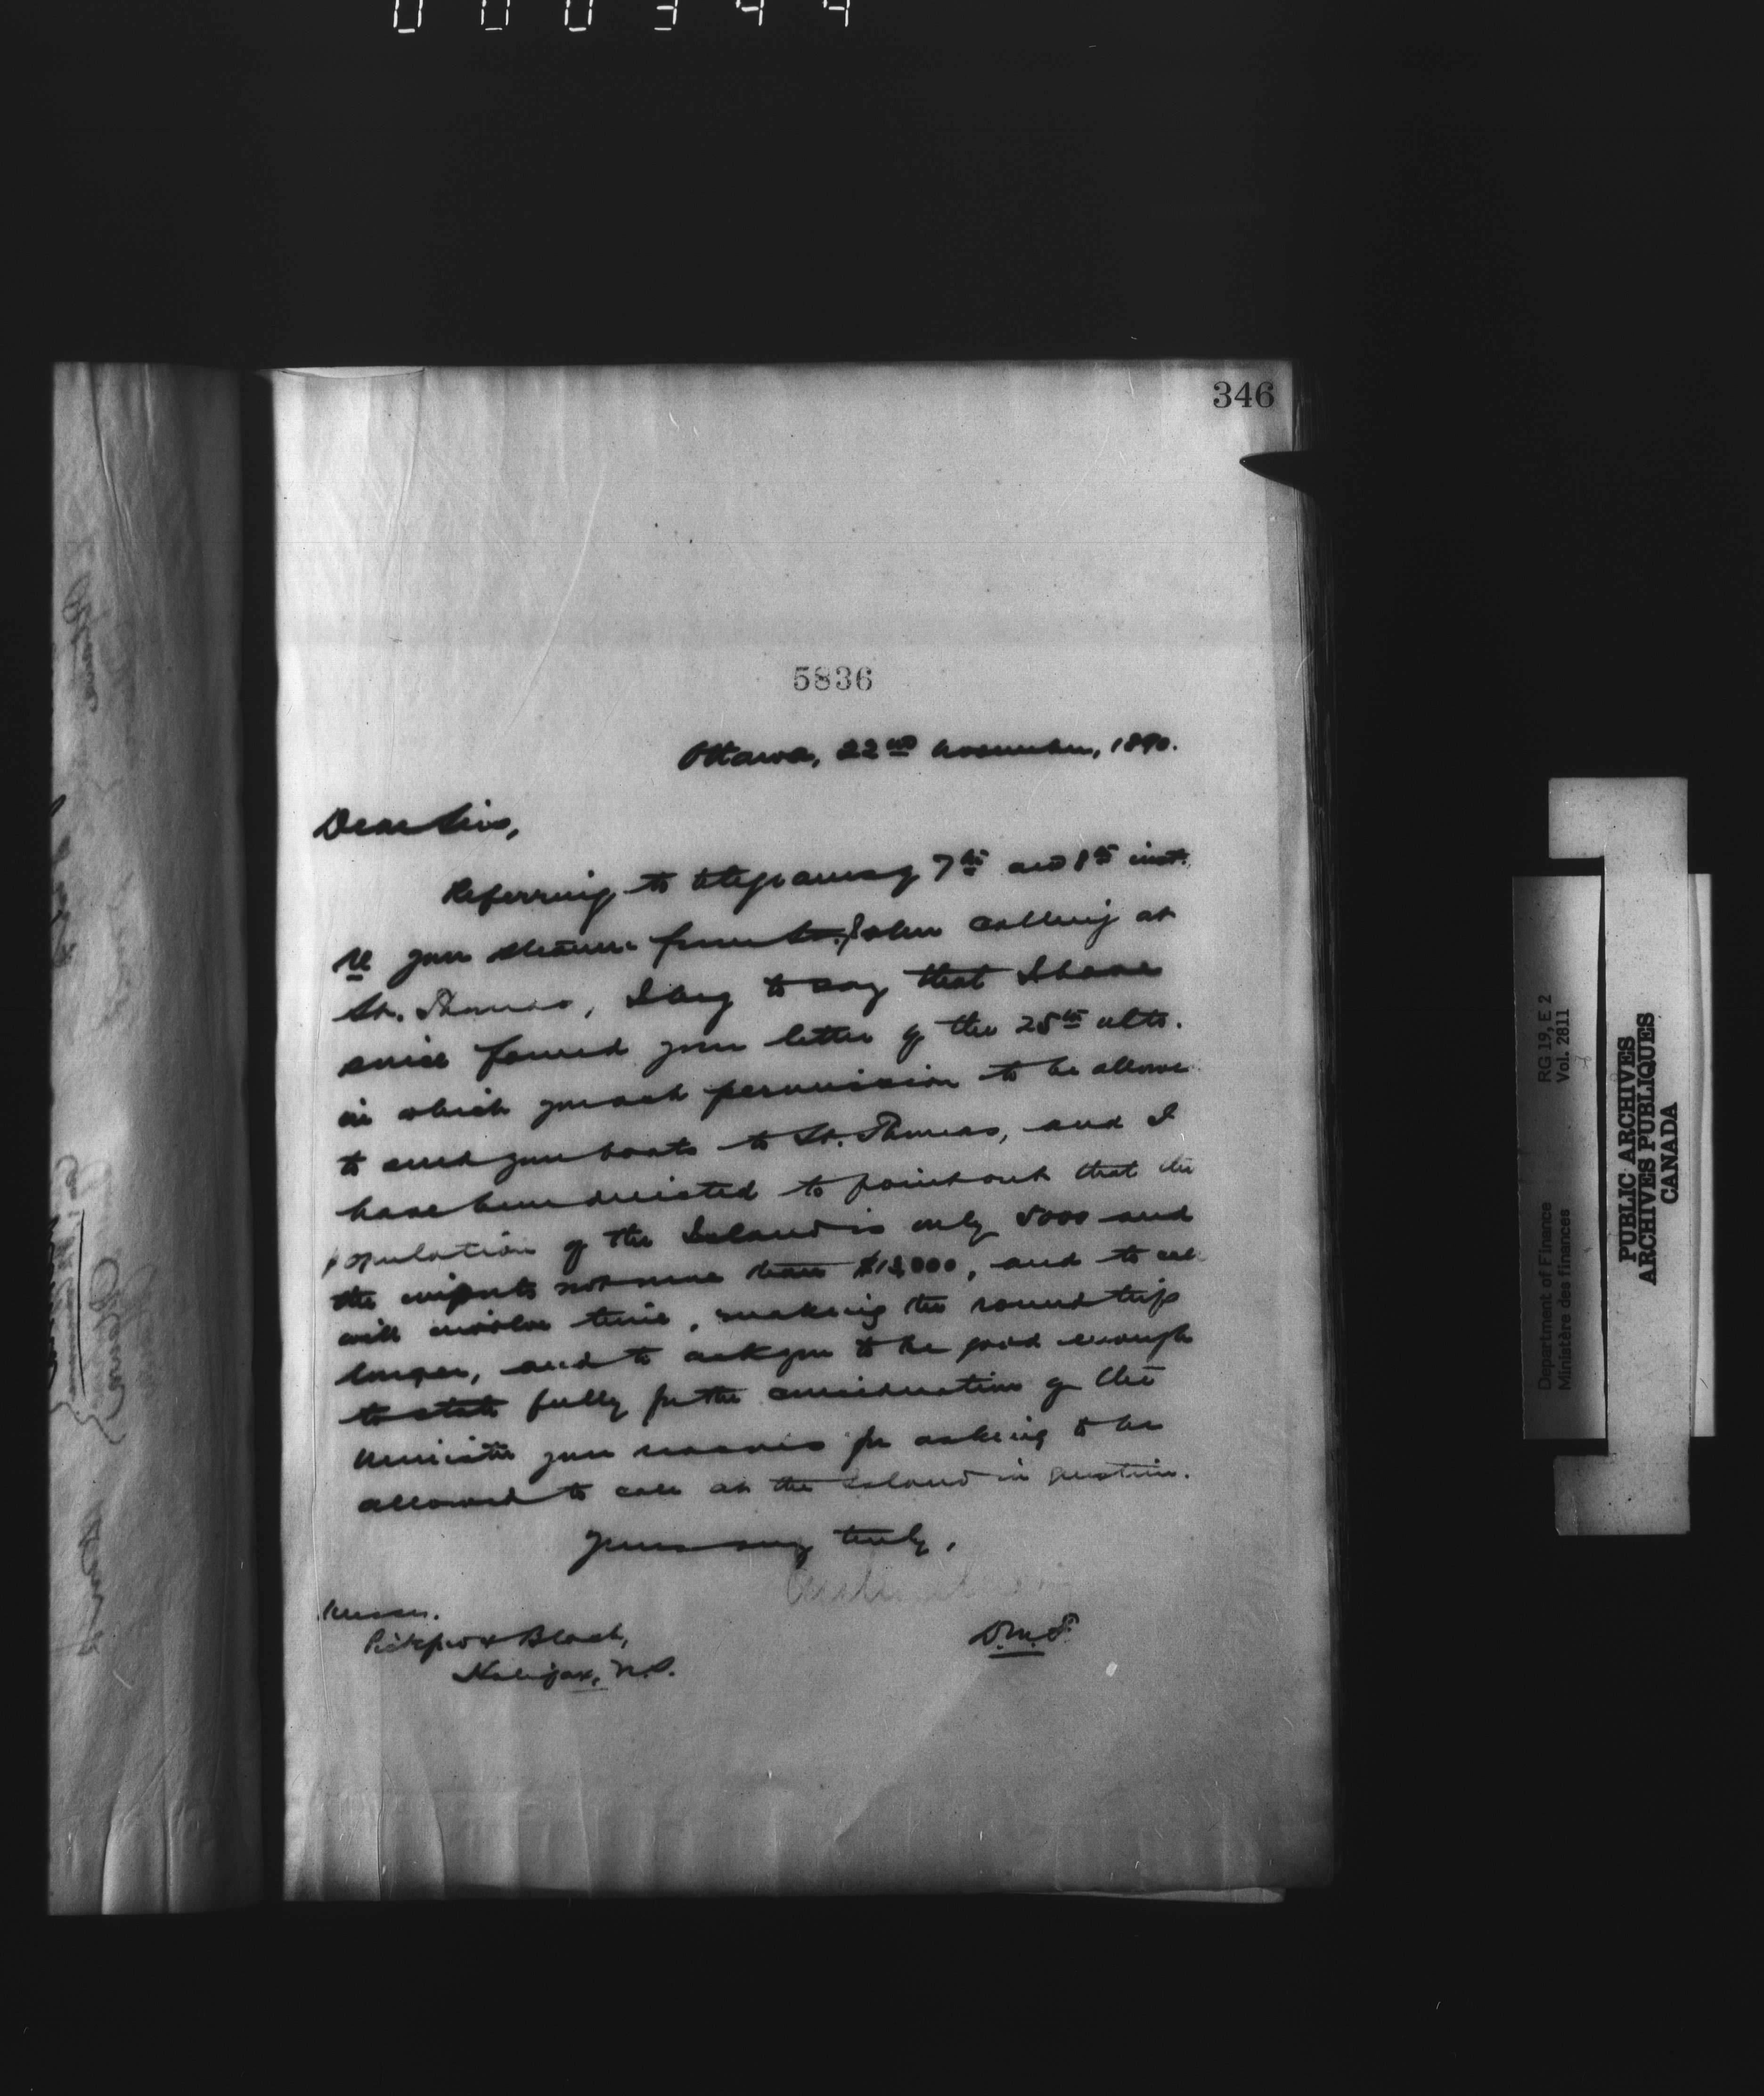 000344
346
5836
Ottawa, 22nd November, 1890.
Dear Sirs,
Referring to telegrams of 7th and 8th inst.
re your steamer from St. John calling at
St. Thomas, I beg to say that I have
since found your letter of the 25th ulto.
in which you ask permission to be allowed
to send your boats to St. Thomas, and I
have been directed to point out that the
population of the Island is only 5000 and
the imports not more than $13,000, and to call
will involve time, making the round trip
longer, and to ask you to be good enough
to state fully for the consideration of the
Minister your reasons for asking to be
allowed to call at the Island in question.
Yours very truly,
D.M.F.
Messrs.
Pickford & Black,
Halifax, N.S.
Department of Finance RG 19, E 2
Ministère des finances Vol. 2811
PUBLIC ARCHIVES
ARCHIVES PUBLIQUES
CANADA